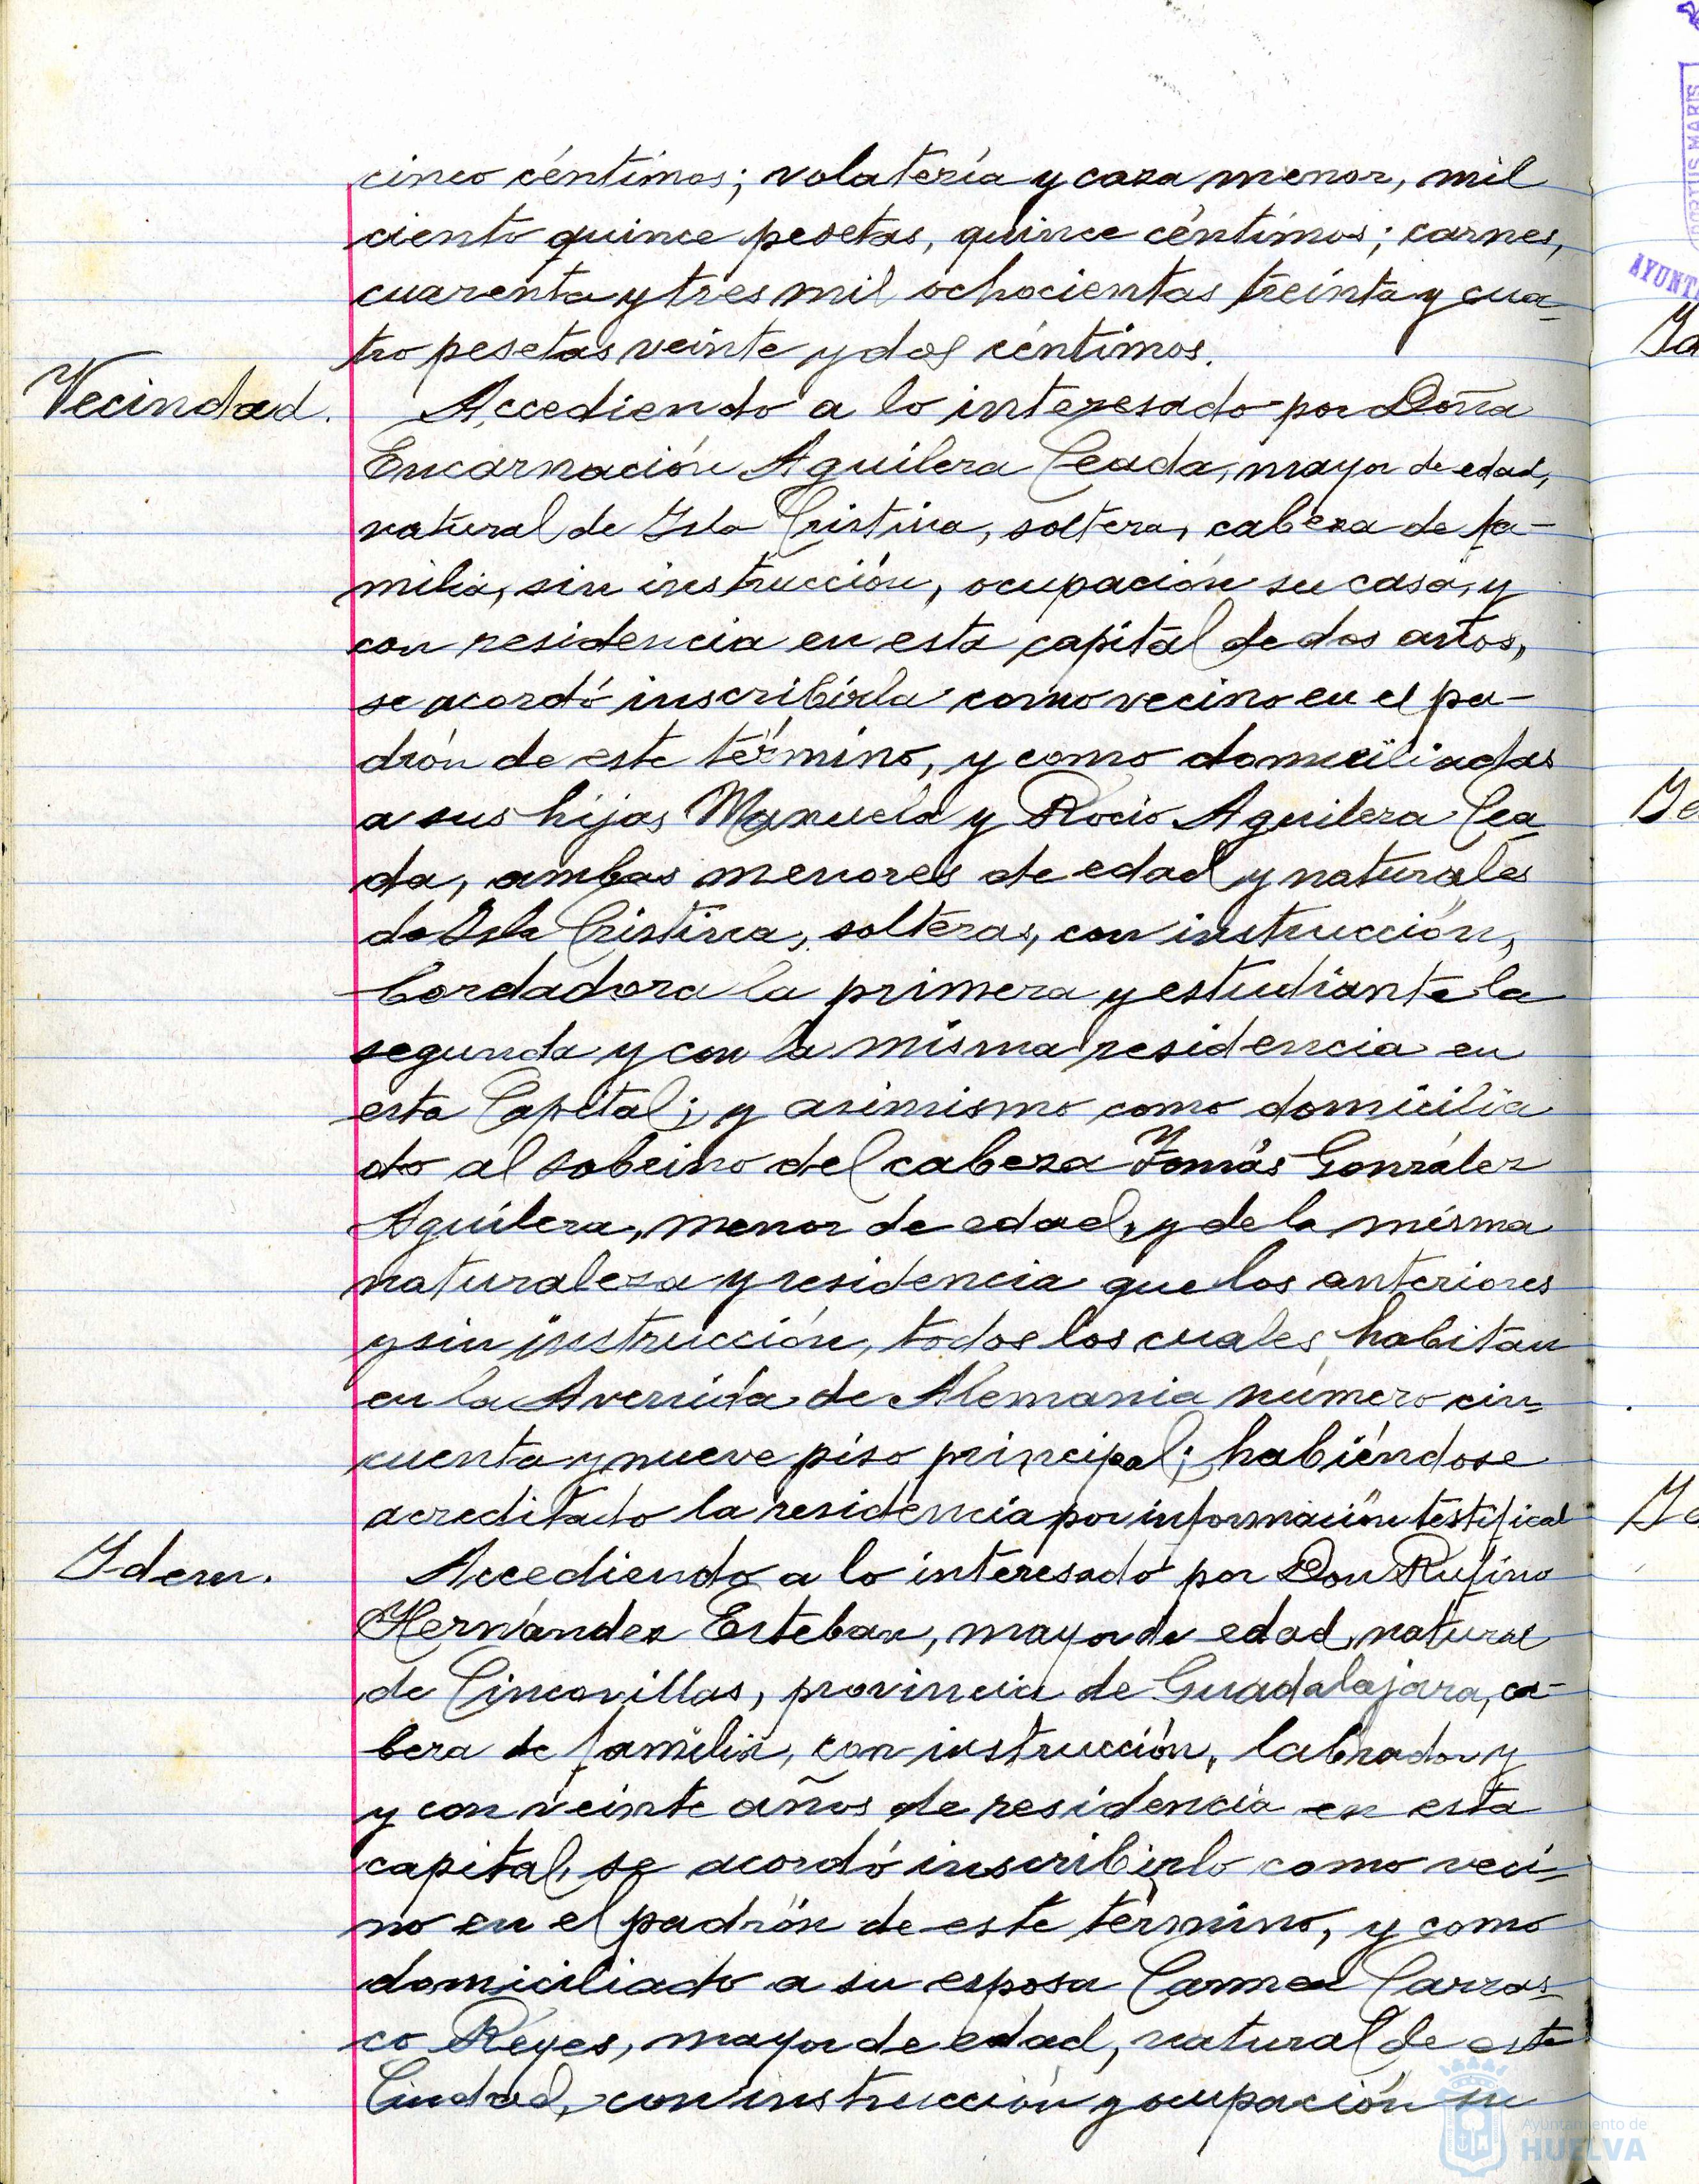 cinco céntimos; volatería y caza menor, mil
ciento quince pesetas, quince céntimos; carnes,
cuarenta y tres mil ochocientas treinta y cua-
tro pesetas veinte y dos céntimos.
Vecindad.
Accediendo a lo interesado por Doña
Encarnación Aguilera Ceada, mayor de edad,
natural de Isla Cristina, soltera, cabeza de fa-
milia, sin instrucción, ocupación su casa, y
con residencia en esta capital de dos años,
se acordó inscribirla como vecino en el pa-
drón de este término, y como domiciliadas
a sus hijas Manuela y Rocío Aguilera Cea-
da, ambas menores de edad y naturales
de Isla Cristina, solteras, con instrucción,
bordadora la primera y estudiante la
segunda y con la misma residencia en
esta Capital; y asimismo como domicilia
do al sobrino del cabeza Tomás González
Aguilera, menor de edad, y de la misma
naturaleza y residencia que los anteriores
y sin instrucción, todos los cuales habitan
en la Avenida de Alemania número cin-
cuenta y nueve piso principal; habiéndose
acreditado la residencia por información testifical
Idem.
Accediendo a lo interesado por Don Rufino
Hernández Esteban, mayor de edad, natural
de Cincovillas, provincia de Guadalajara, ca-
beza de familia, con instrucción, labrador y
y con veinte años de residencia en esta
capital, se acordó inscribirlo como veci-
no en el padrón de este término, y como
domiciliado a su esposa Carmen Carras-
co Reyes, mayor de edad, natural de esta
Ciudad, con instrucción y ocupación su
AYUNT
Ayuntamiento de
HUELVA